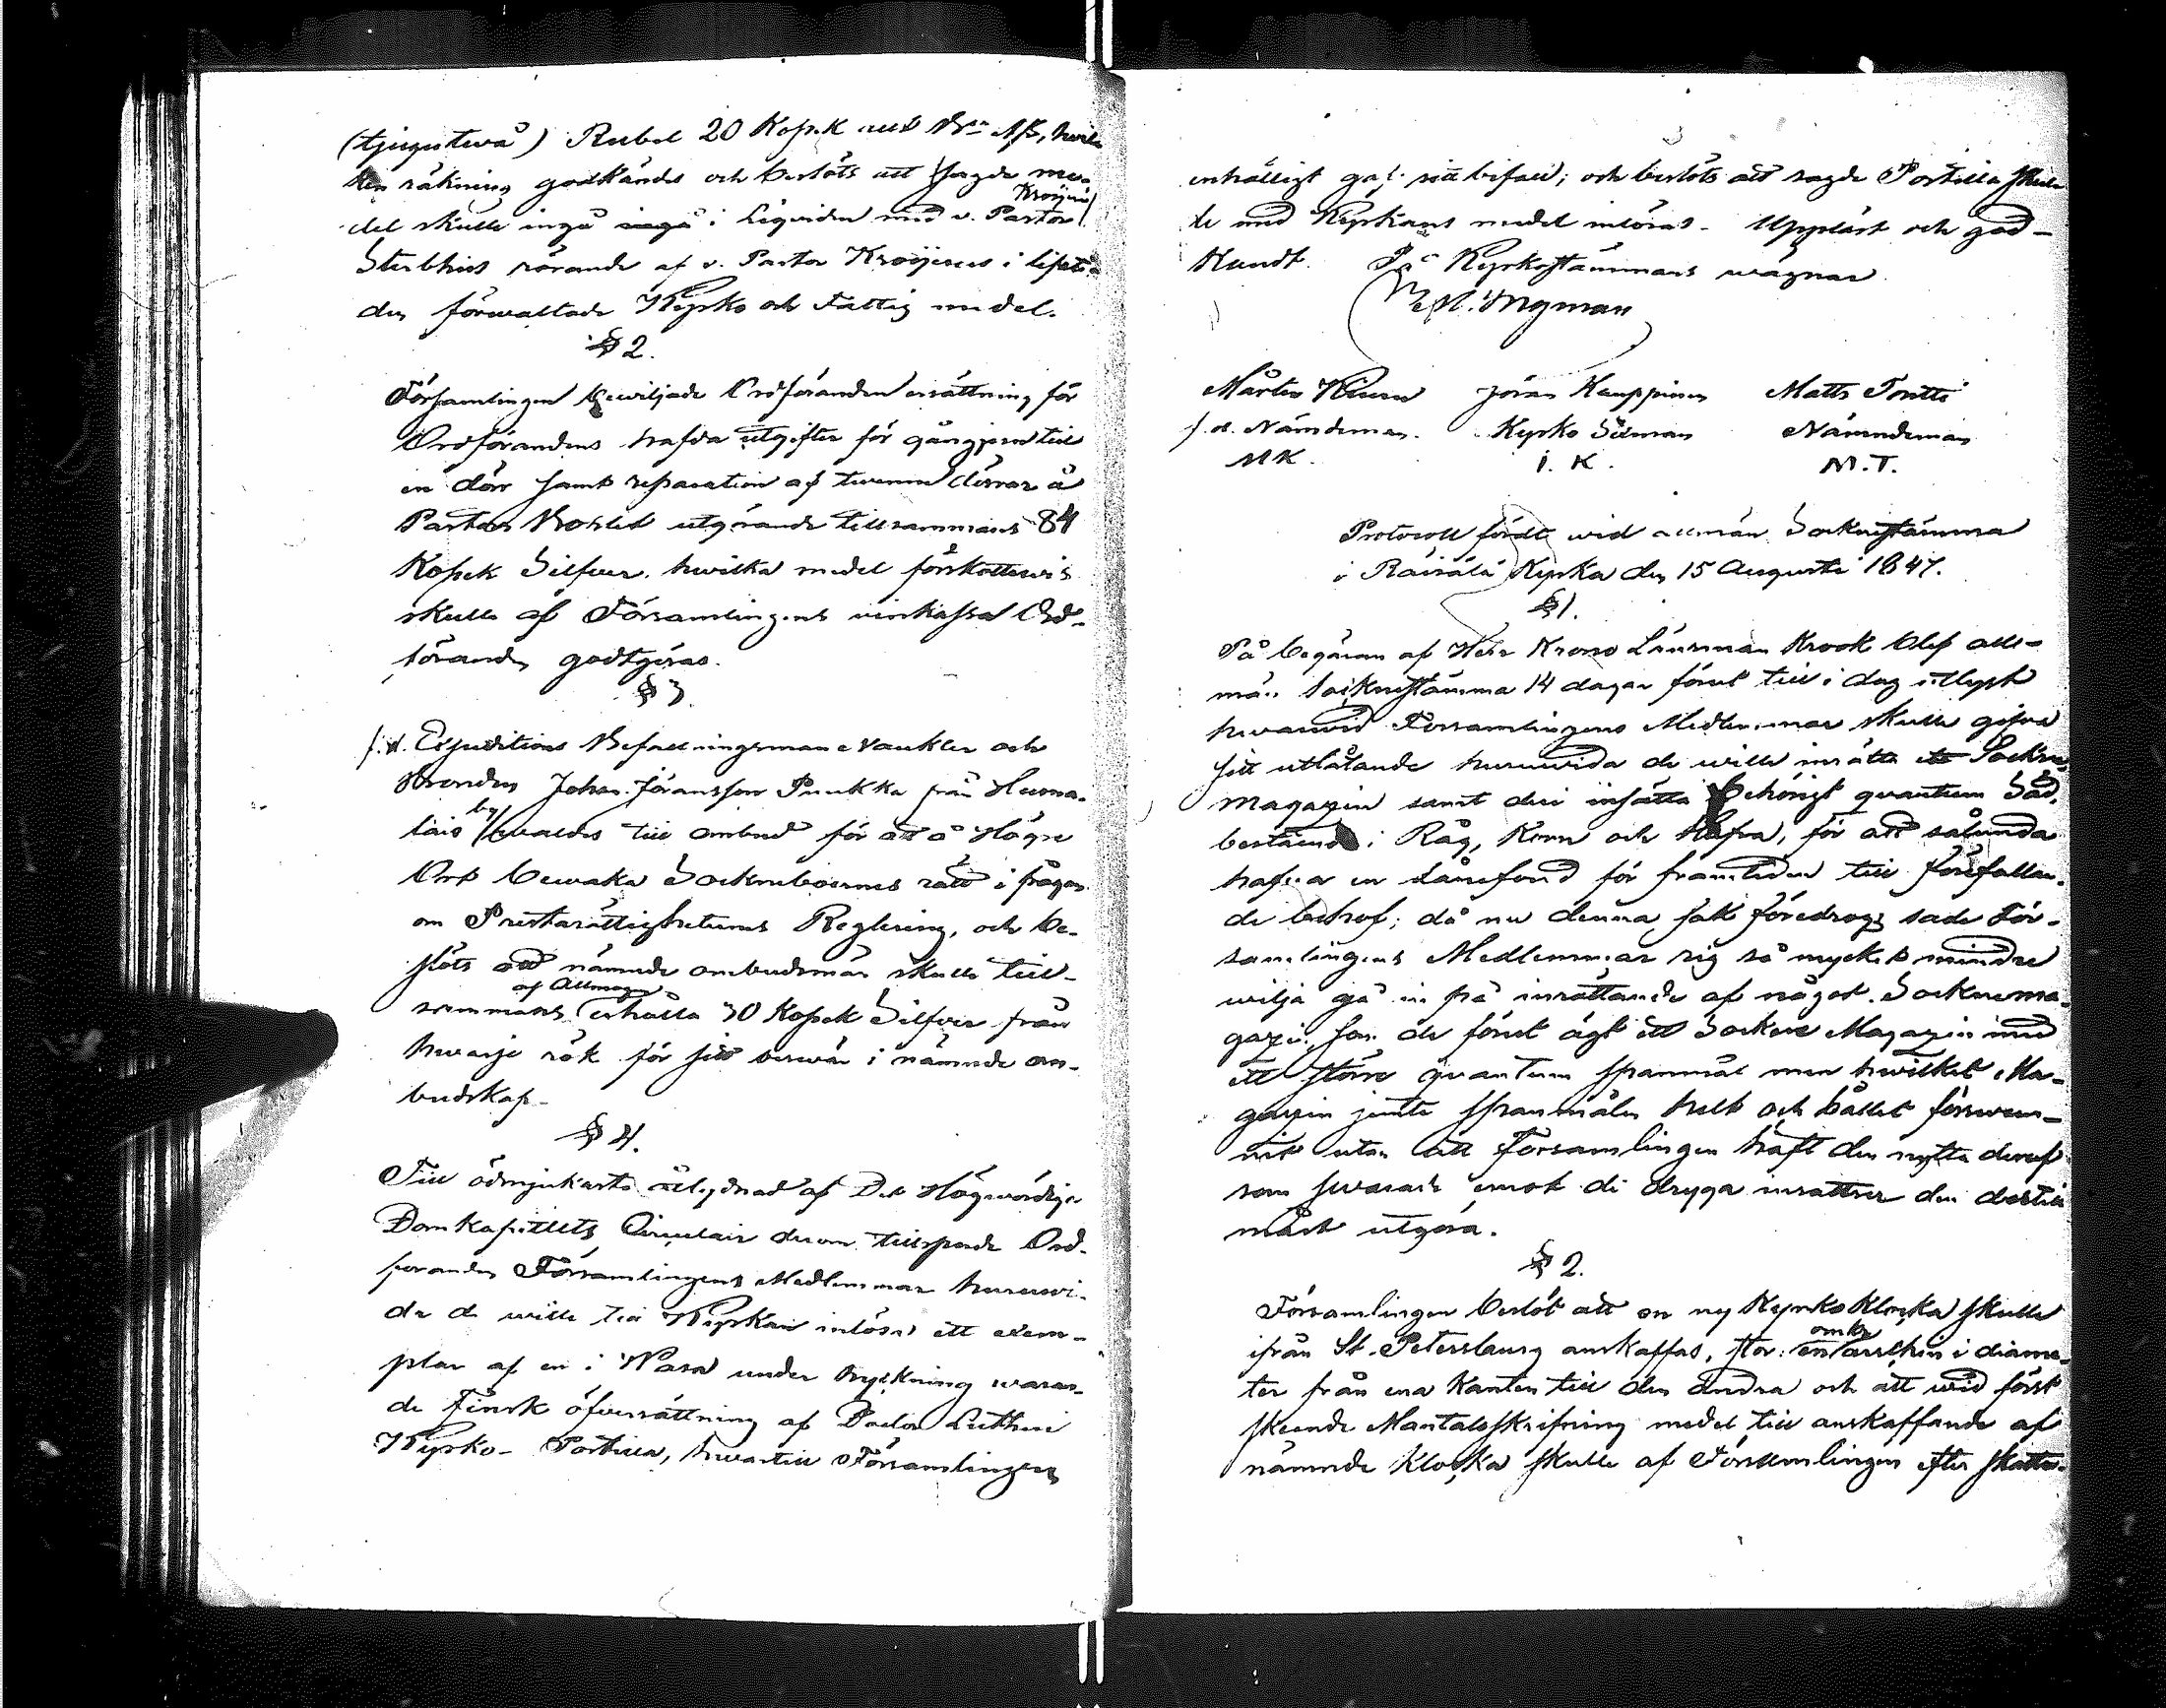 (tjugutwå) Rubel 20 Kopek hwil-
ken räkning godkändes och beslöts att sagde me-
del skulle ingå ingå i Liqviden med v. Pastor Kroijeri
Sterbhus rörande af v. Pastor Kroijerus i lifsti-
den förwaltade Kyrko och Fattig medel.
§ 2.
Församlingen bewiljade Ordföranden ersättning för
Ordförandens hafda utgifter för gångjern till
en dörr samt reparation af twenne dörrar å
Pastors Bohlet utgörande tillsammans 84
Kopek Silfver. hwilka medel förskottswis
skulle af Församlingens vinkassa Ord-
föranden godtgöras.
§ 3.
f.d. Expeditions Befallningsman Vaukler och
Bonden Johan Jöransson Puukka från Huma-
lais by walde till ombud för att å Högre
Ort bewaka Sockneboernes rätt i frågan
om Prestarättigheternes Reglering, och be-
slöts att nämnde ombudsmän skulle till-
sammans af Allmogen erhålla 30 Kopek Silfver från
hwarje rök för sitt beswär i nämnde om-
budskap.
§ 4.
Till ödmjukaste åtlydnad af Det Högwördige
Domkapitlets Circulair derom tillsporde Ord-
föranden Församlingens Medlemmar huruwi-
da de wille till Kyrkan inlösa ett exem-
plar af en i Wasa under tryckning waran-
de Finsk öfversättning af Doctor Lutheri
Kyrko-Postilla, hwartill Församlingen
enhälligt gaf sitt bifall; och beslöts att sagde Postilla skul-
le med Kyrkans medel inlösas. Uppläst och god-
kändt. På Kyrkostämmans wägnar
Ingman
Mårten Kiuru Jöran Kauppinen Matts Tontti
f.d. Nämdeman. Kyrko Sexman Nämndeman
M K. I. K. M. T.
Protocoll fördt wid allmän Sockenstämma
i Räisälä Kyrka den 15 Augusti 1847.
§ 1.
På begäran af Herr Krono Länsman Krook blef all-
män Sockenstämma 14 dagar förut till i dag utlyst
hwarwid Församlingens Medlemmar skulle gifva
sitt utlåtande huruwida de wille inrätta ett Sockne
magazin samt deri insätta behörigt quantum Säd,
bestående i Råg, Korn och Hafra, för att sålunda
hafva en lånefond för framtiden till förefallan-
de behof; då nu denna sak föredrogs sade För-
samlingens Medlemmar sig så mycket mindre
wilja gå in på inrättande af något Socknema-
gazin, som de förut ägt ett Sockne Magazin med
ett större quantum spanmål men hwilket Ma-
gazin jemte spanmålen helt och hållet förswun-
nit utan att Församlingen haft den nytta deraf
som swarade emot di dryga insattser den dertill
måst utgöra.
§ 2.
Församlingen beslöt att en ny Kyrko Klocka skulle
ifrån St. Petersburg anskaffas, stor: omkr en arschin i diame-
ter från ena kanten till den andra och att wid först
skeende Mantalsskrifning medel till anskaffande af
nämnde Klocka skulle af Församlingen efter skatte-